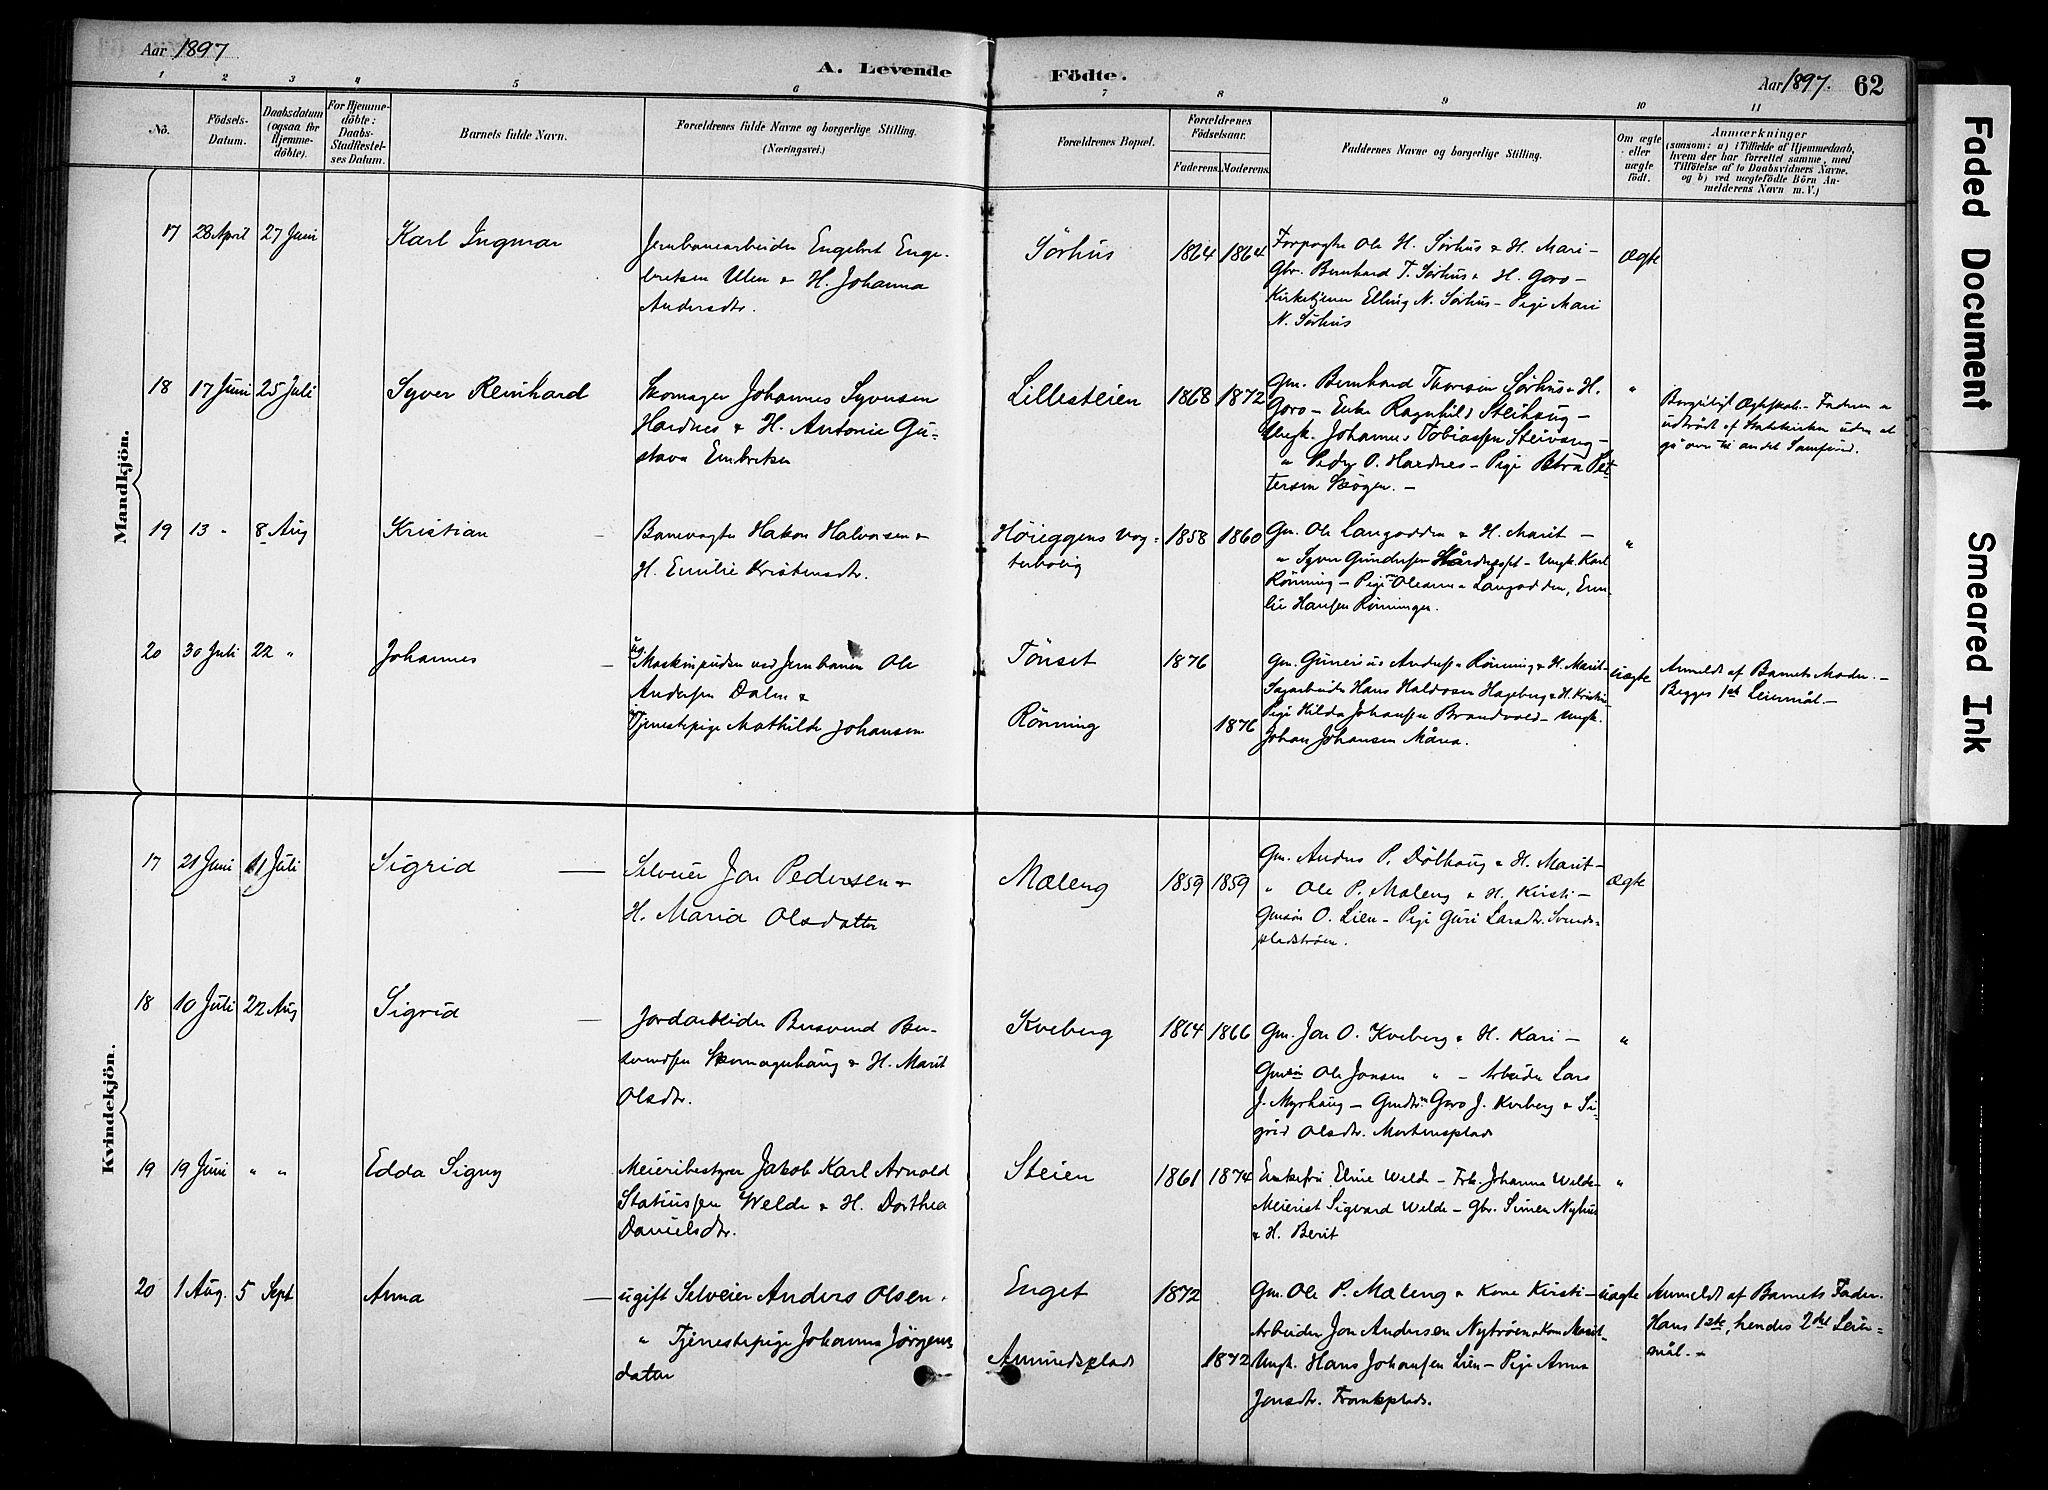 Aar 1897
A. Levende Födte.
Aar 1897. 62
1 2 3 4 5 6 7 8 9 10 11
No.
Födsels-Datum.
Daabsdatum (ogsaa for Hjemmedöbte).
For Hjemmedöbte: Daabs-Stadfestelses Datum.
Barnets fulde Navn.
Forældrenes fulde Navne og borgerlige Stilling.
(Næringsvei.)
Forældrenes Bopæl.
Forældrenes Födselsaar.
Faderens. Moderens.
Faddernes Navne og borgerlige Stilling.
Om ægte eller uægte födt.
Anmærkninger
(saasom: a) i Tilfælde af Hjemmedaab,
hvem der har forrettet samme, med
Tilföielse af to Daabsvidners Navne,
og b) ved uægtefödte Börn An-
melderens Navn m. V.)
Mandkjön.
17 28 April 27 Juni Karl Ingmar
Jernbanearbeider Engebret Enge-
bretsen Ulen & H. Johanna
Andersdtr.
Sörhus 1864 1864
Forpagter Ole H. Sörhus & H. Mari –
Gbr. Bernhard T. Sörhus & H. Goro –
Kirketjener Elling N. Sörhus – Pige Mari
N. Sörhus
Ægte
18 17 Juni 25 Juli Syver Reinhard
Skomager Johannes Syversen
Hardnes & H. Antonie Gu-
stava Embretsen
Lillesteien 1868 1872
Gm. Bernhard Thoresen Sörhus & H.
Goro – Enke Ragnhild Steihaug –
Ungk. Johannes Tobiassen Steivang –
" Peder O. Hardnes – Pige Petra Pet-
tersen Skögen. –
"
Borgerligt Ægteskab. – Faderen er
udtrådt af Statskirken uden at
gå over til andet Samfund.
19 13 " 8 Aug Kristian
Banevogter Hakon Halvorsen &
H. Emilie Kristensdtr.
Höieggens Vog-
terbolig
1858 1860
Gm. Ole Langodden & H. Marit –
" Syver Gundersen Hårdegset – Ungk. Karl
Rönning – Pige Oleanna Langodden, Emi-
lie Hansen Rönningen.
"
20 30 Juli 22 " Johannes
ug. Maskinpudser ved Jernbanen Ole
Andersen Dalen &
Tjenestepige Mathilde Johansen
Tönset 1876
Rönning 1876
Gm. Gunerius Andersen Rönning & H. Marit –
Sagarbeider Hans Haldosen Hageberg & H. Kristi –
Pige Hilda Johansen Brandvold – Ungk.
Johan Johansen Måna.
uægte
Anmeldt af Barnets Moder. –
Begges 1ste Leiermål. –
Kvindekjön.
17 21 Juni 11 Juli Sigrid
Selveier Jon Pedersen &
H. Maria Olsdatter
Mæleng 1859 1859
Gm. Anders P. Dölhaug & H. Marit –
" Ole P. Mæleng & H. Kirsti –
Gmsön O. Lien – Pige Guri Larsdtr. Svends-
pladströen.
ægte
18 10 Juli 22 Aug Sigrid
Jordarbeider Bersvend Ber-
svendsen Skomagerhaug & H. Marit
Olsdtr.
Kveberg 1864 1866
Gm. Jon O. Kveberg & H. Kari –
Gmsön Ole Jonsen " – Arbeider Lars
J. Myrhaug – Gmdtr. Goro J. Kveberg & Si-
grid Olsdtr. Mortensplads
"
19 19 Juni " " Edda Signy
Meieribestyrer Jakob Karl Arnold
Statiussen Welde & H. Dorthea
Danielsdtr.
Steien 1861 1874
Enkefru Eline Welde – Frk. Johanna Welde –
Meierist Sigvard Welde – Gbr. Simen Nyhus
& H. Berit
"
20 1 Aug. 5 Sept Anna
ugift Selveier Anders Olsen &
" Tjenestepige Johanna Jörgens-
datter
Enget 1872
Amundsplads 1872
Gm. Ole P. Mæleng & Kone Kirsti –
Arbeider Jon Andersen Nytröen & Kone Marit –
Ungk. Hans Johansen Lien – Pige Anna
Jonsdtr. Tronsplads.
uægte
Anmeldt af Barnets Fader.
Hans 1ste, hendes 2det Leier-
mål. –
Faded Document
Smeared Ink